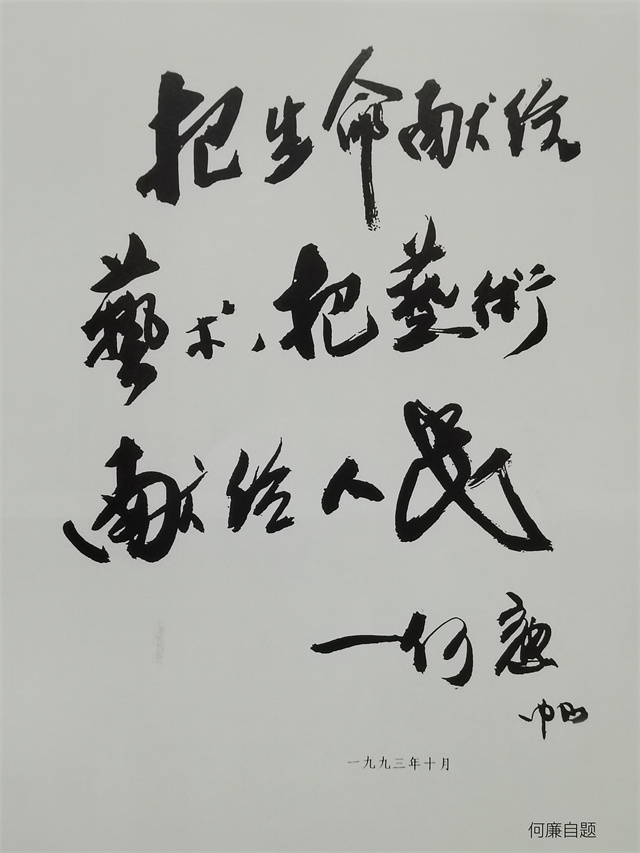 把生命献给
藝术、把藝術
献给人民
一何
一九九三年十月
何廉自题